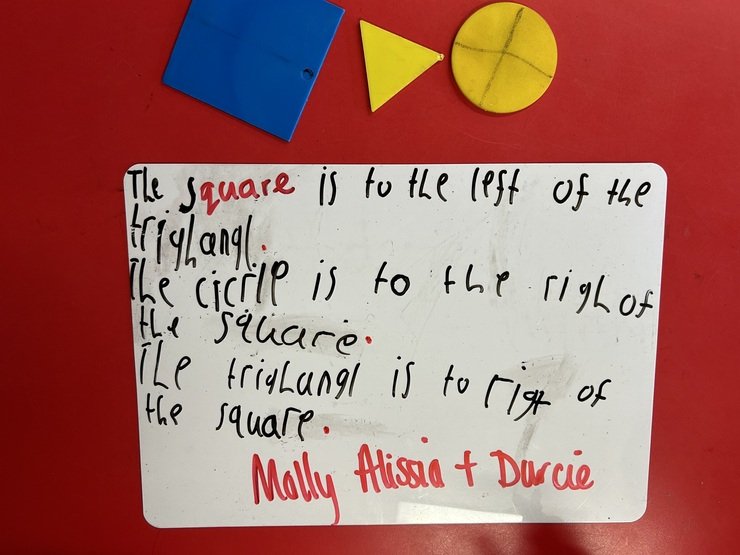 The square is to the left of the
trighangl.
The cicrlle is to the righ of
the square.
The trighangl is to right of
the square.
Molly Alissia + Darcie